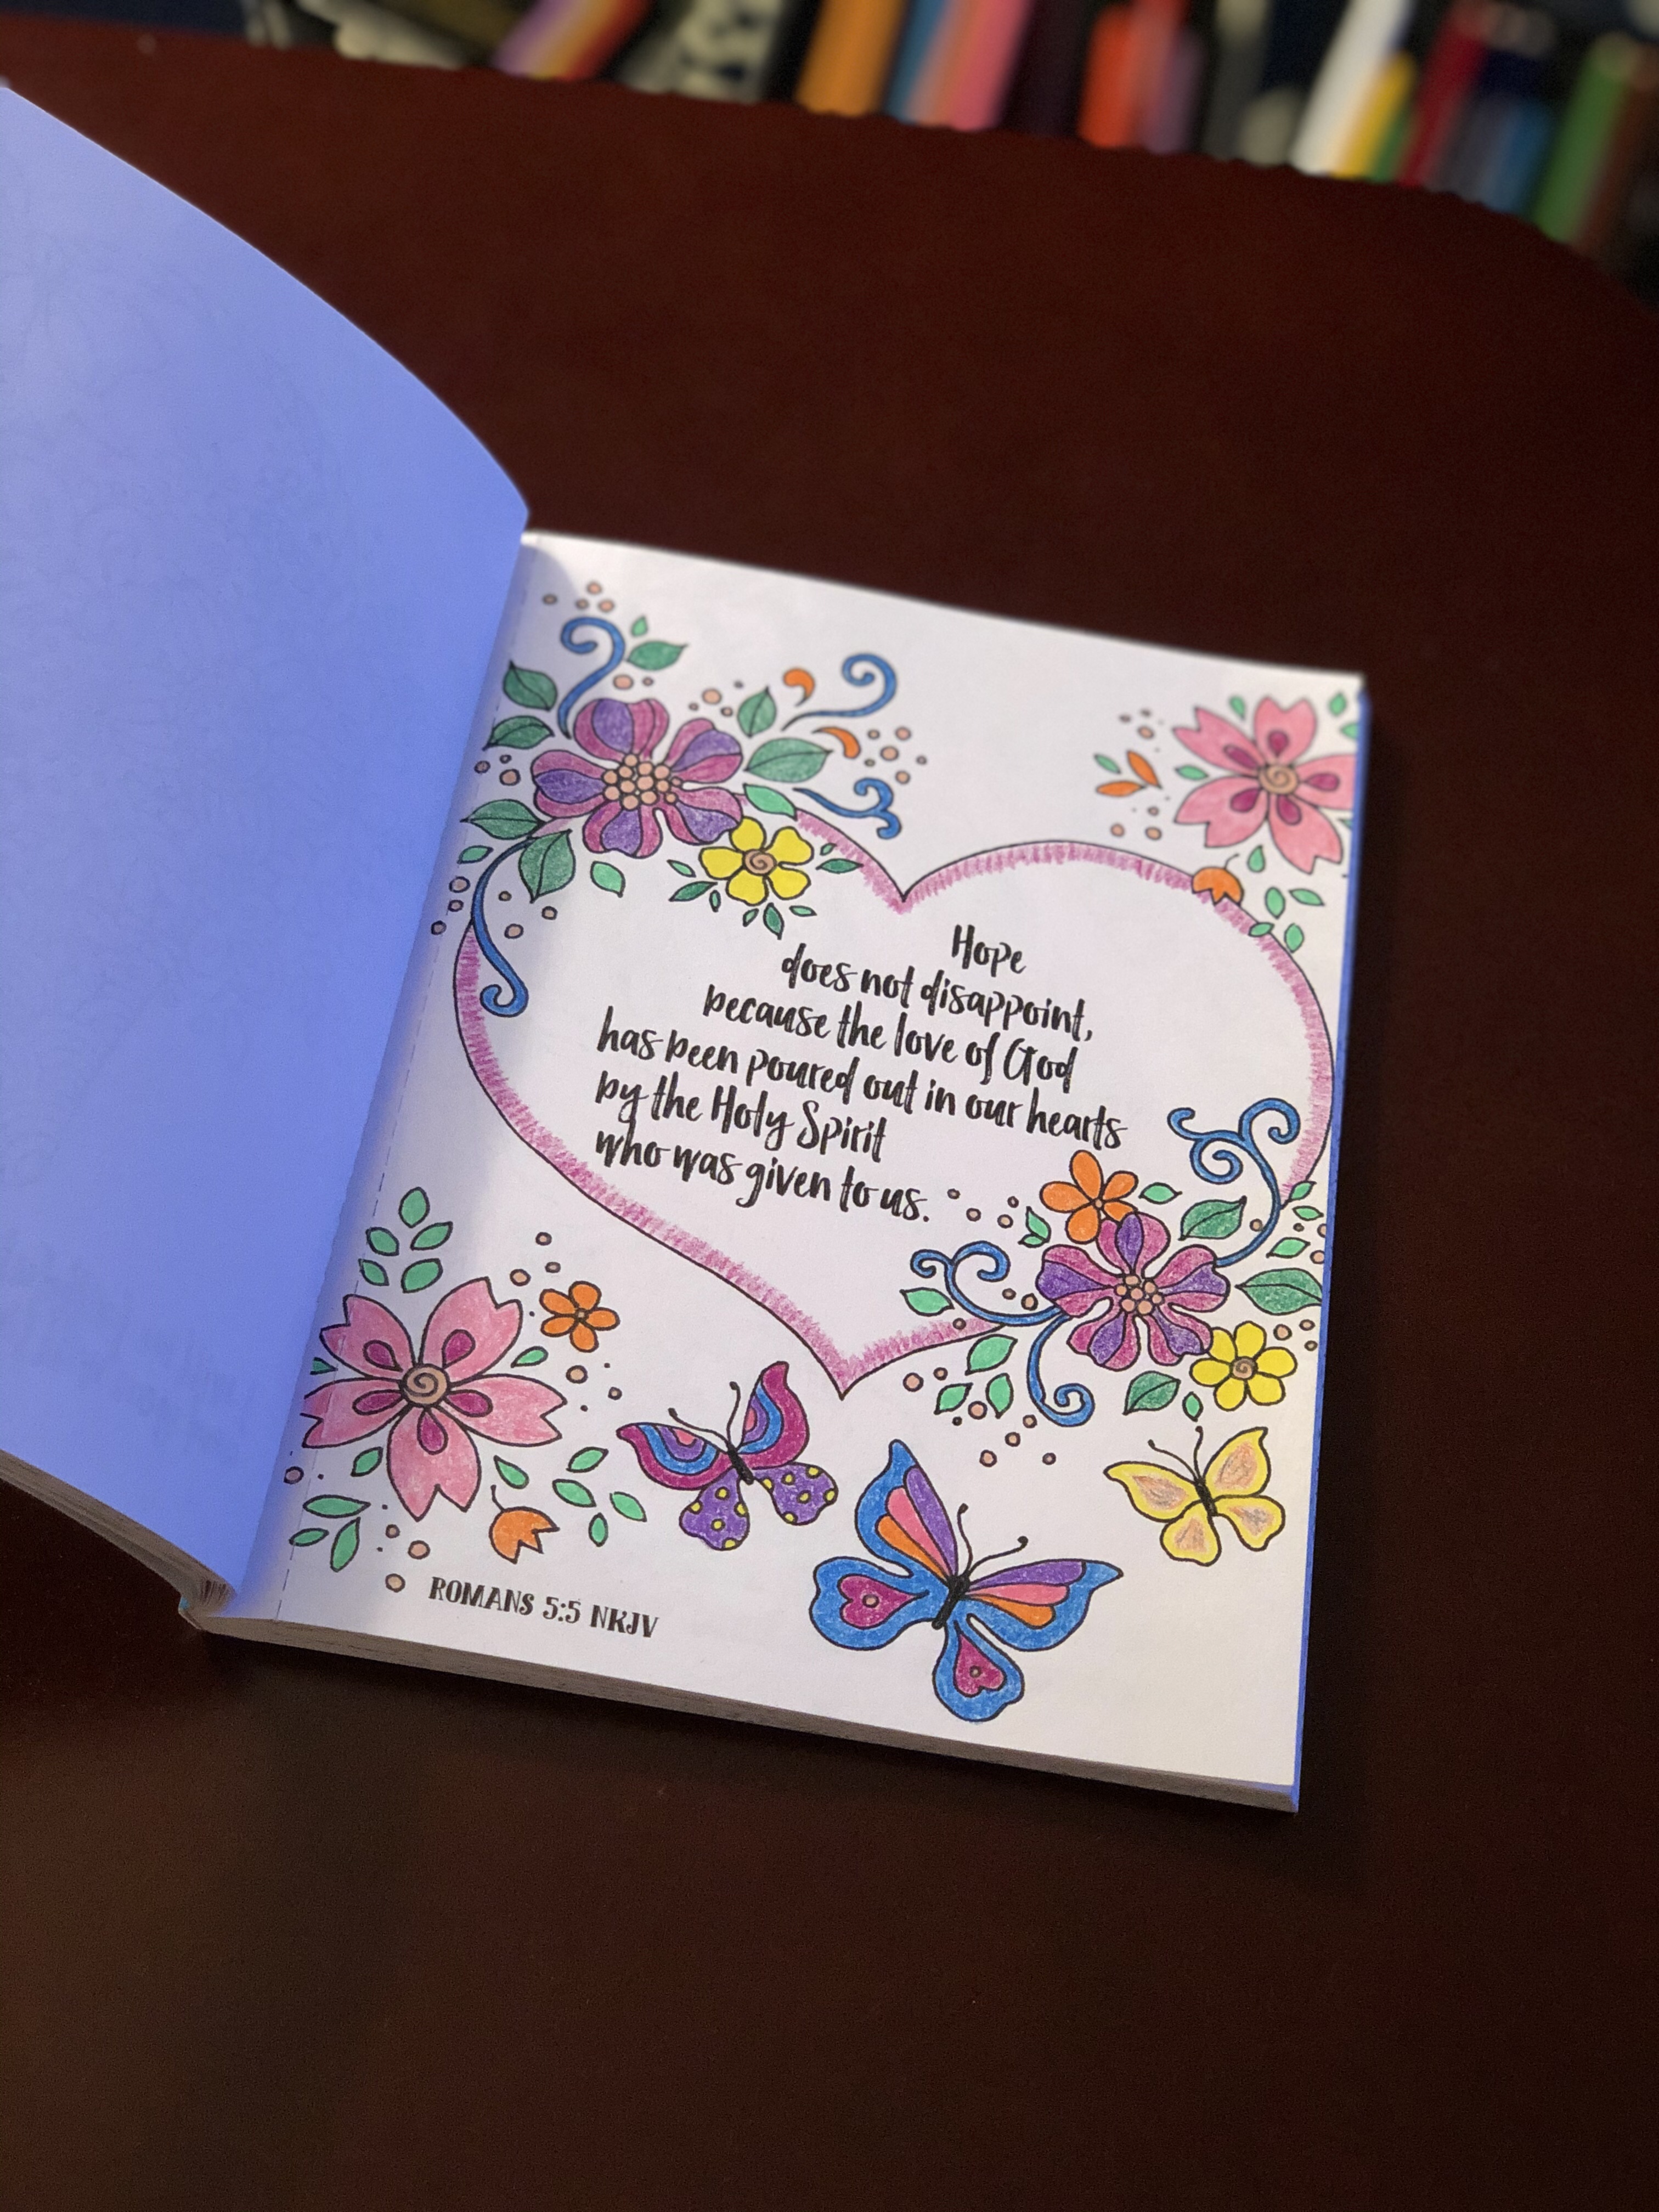 Hope
does not disappoint,
because the love of God
has been poured out in our hearts
by the Holy Spirit
who was given to us.
ROMANS 5:5 NKJV